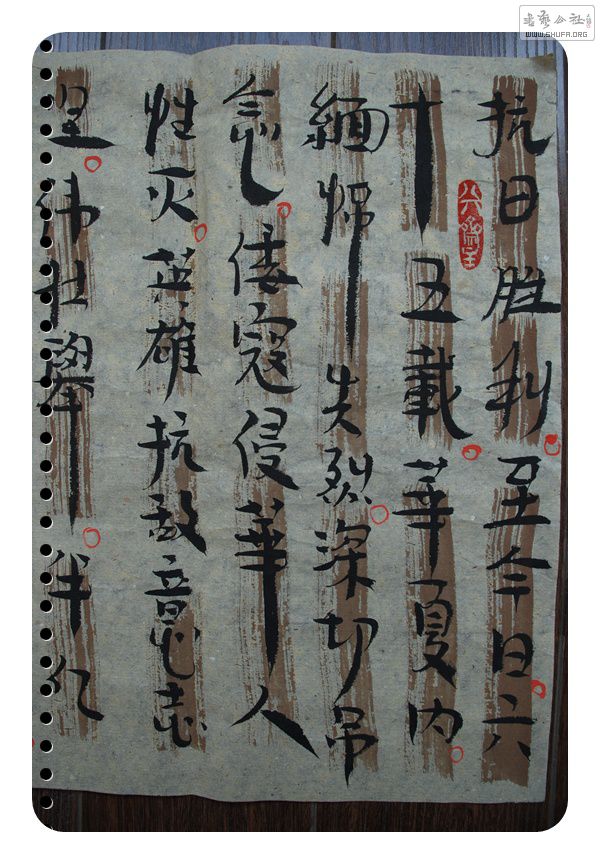 書藝公社
WWW.SHUFA.ORG
抗日胜利至今日六
十五載華夏内
緬怀先烈深切吊
念倭寇侵華人
性灭英雄抗敌意志
坚伟壮舉半亿